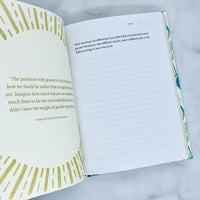 "The problem with gender is that it prescribes
how we should be rather than recognizing how we
are. Imagine how much happier we would be, how
much freer to be our true individual selves, if we
didn't have the weight of gender expectations."
What would you do differently if you didn't feel constrained by your
gender? Would you take different classes, want a different job, or do
different things in your free time?